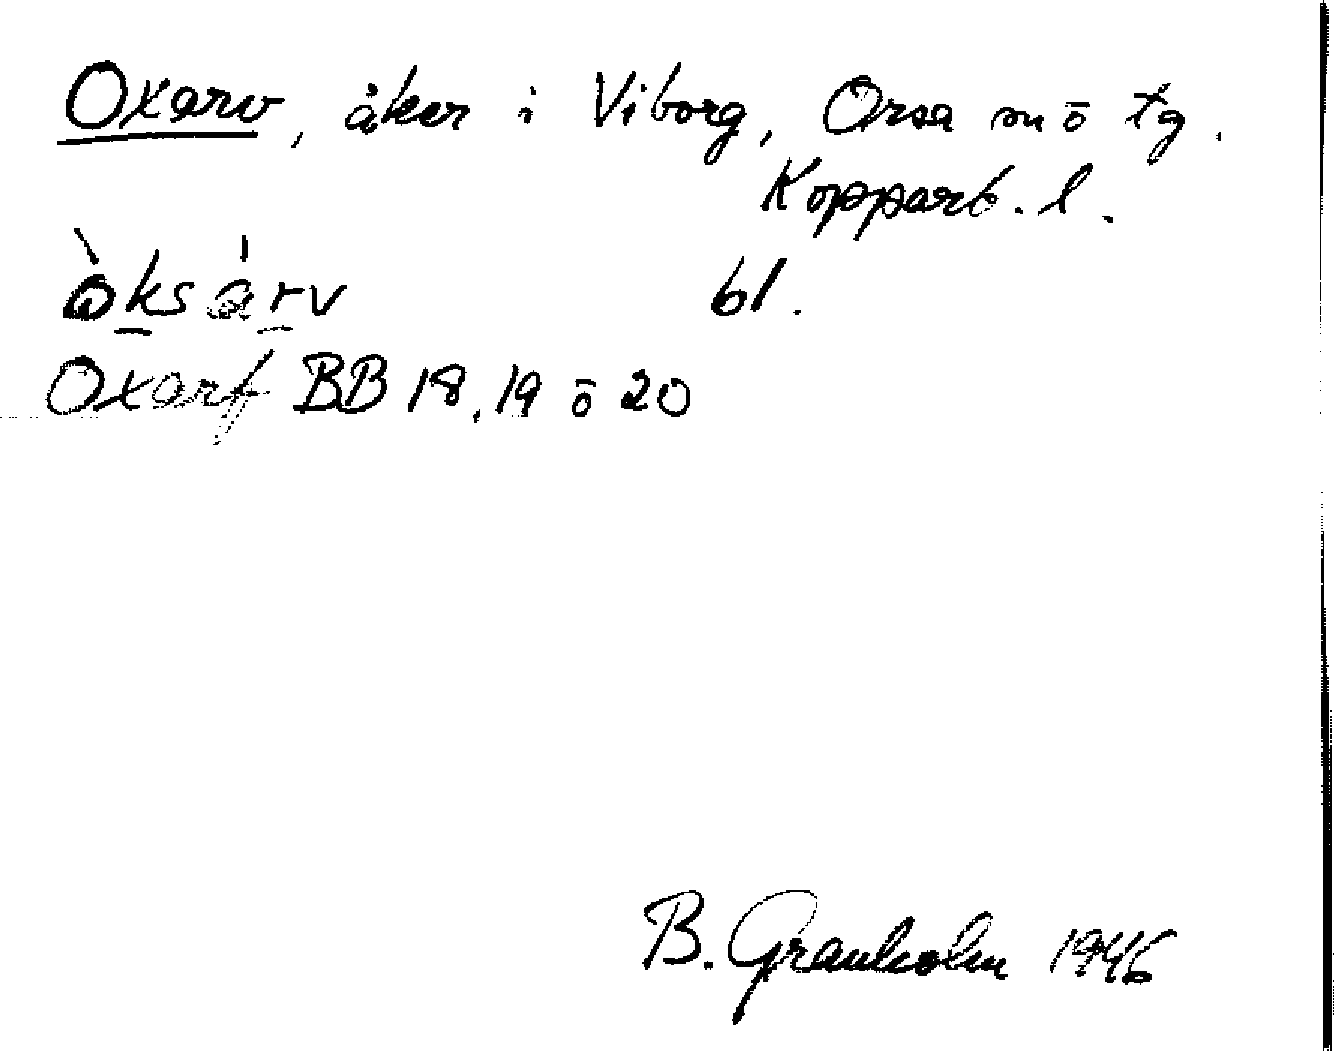 Oxarv, åker i Viborg, Orsa sn ō tg.
Kopparb. l.
òksárv bl.
Oxarf BB 18, 19 ō 20
B. Granholm 1946